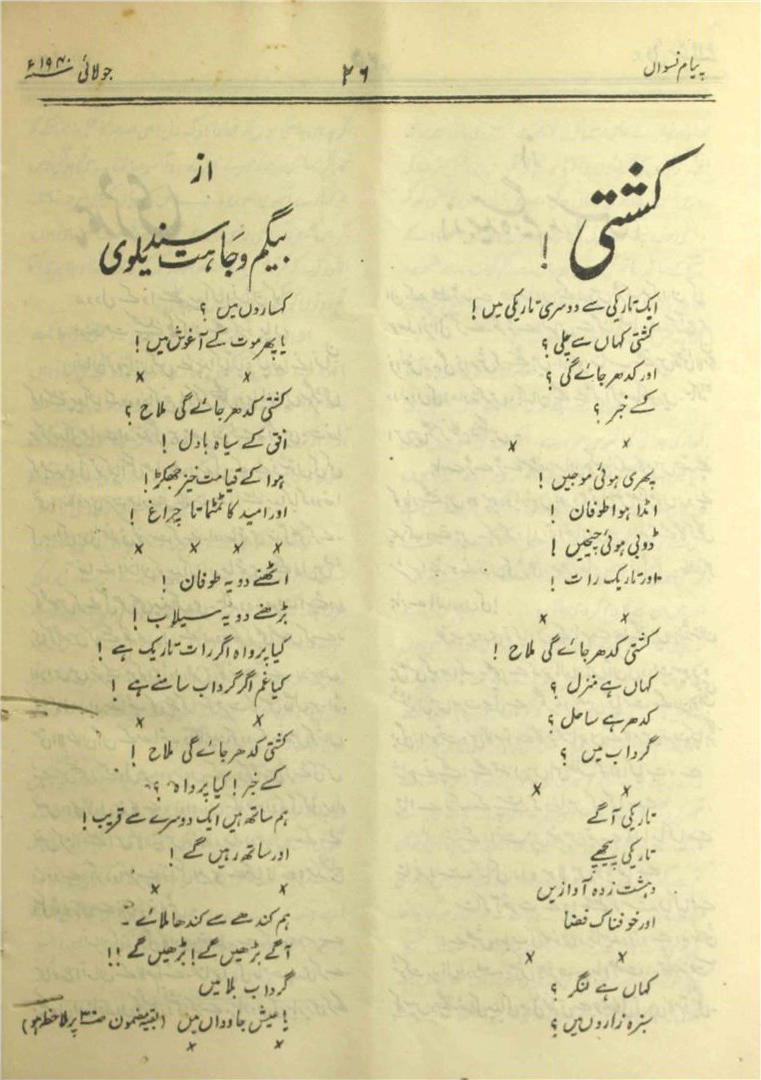 پیام نسواں
۲۶
جولائی ۱۹۴۰ء
کشتی !
از
بیگم وجاہت سندیلوی
ایک تاریکی سے دوسری تاریکی میں !
کشتی کہاں سے چلی ؟
اور کدھر جائے گی ؟
کسے خبر ؟
x x
بپھری ہوئی موجیں !
امڈا ہوا طوفان !
ڈوبی ہوئی چیخیں !
اور تاریک رات !
x x
کشتی کدھر جائے گی ملاح !
کہاں ہے منزل ؟
کدھر ہے ساحل ؟
گرداب میں ؟
x x
تاریکی آگے
تاریکی پیچھے
دہشت زدہ آوازیں
اور خوفناک فضا
x x
کہاں ہے لنگر ؟
سبزہ زاروں میں ؟
کہساروں میں ؟
یا پھر موت کے آغوش میں !
x x
کشتی کدھر جائے گی ملاح ؟
افق کے سیاہ بادل !
ہوا کے قیامت خیز جھکڑ !
اور امید کا ٹمٹماتا چراغ !
x x x x
اٹھنے دو یہ طوفان !
بڑھنے دو یہ سیلاب !
کیا پرواہ اگر رات تاریک ہے !
کیا غم اگر گرداب سامنے ہے !
x x
کشتی کدھر جائے گی ملاح !
کسے خبر ! کیا پرواہ ؟
ہم ساتھ ہیں ایک دوسرے سے قریب !
اور ساتھ رہیں گے !
x x
ہم کندھے سے کندھا ملائے ۔
آگے بڑھیں گے ! بڑھیں گے !!
گرداب بلا میں
یا عیش جاوداں میں (بقیہ مضمون صـ۳ پر ملاحظہ ہو)
x x